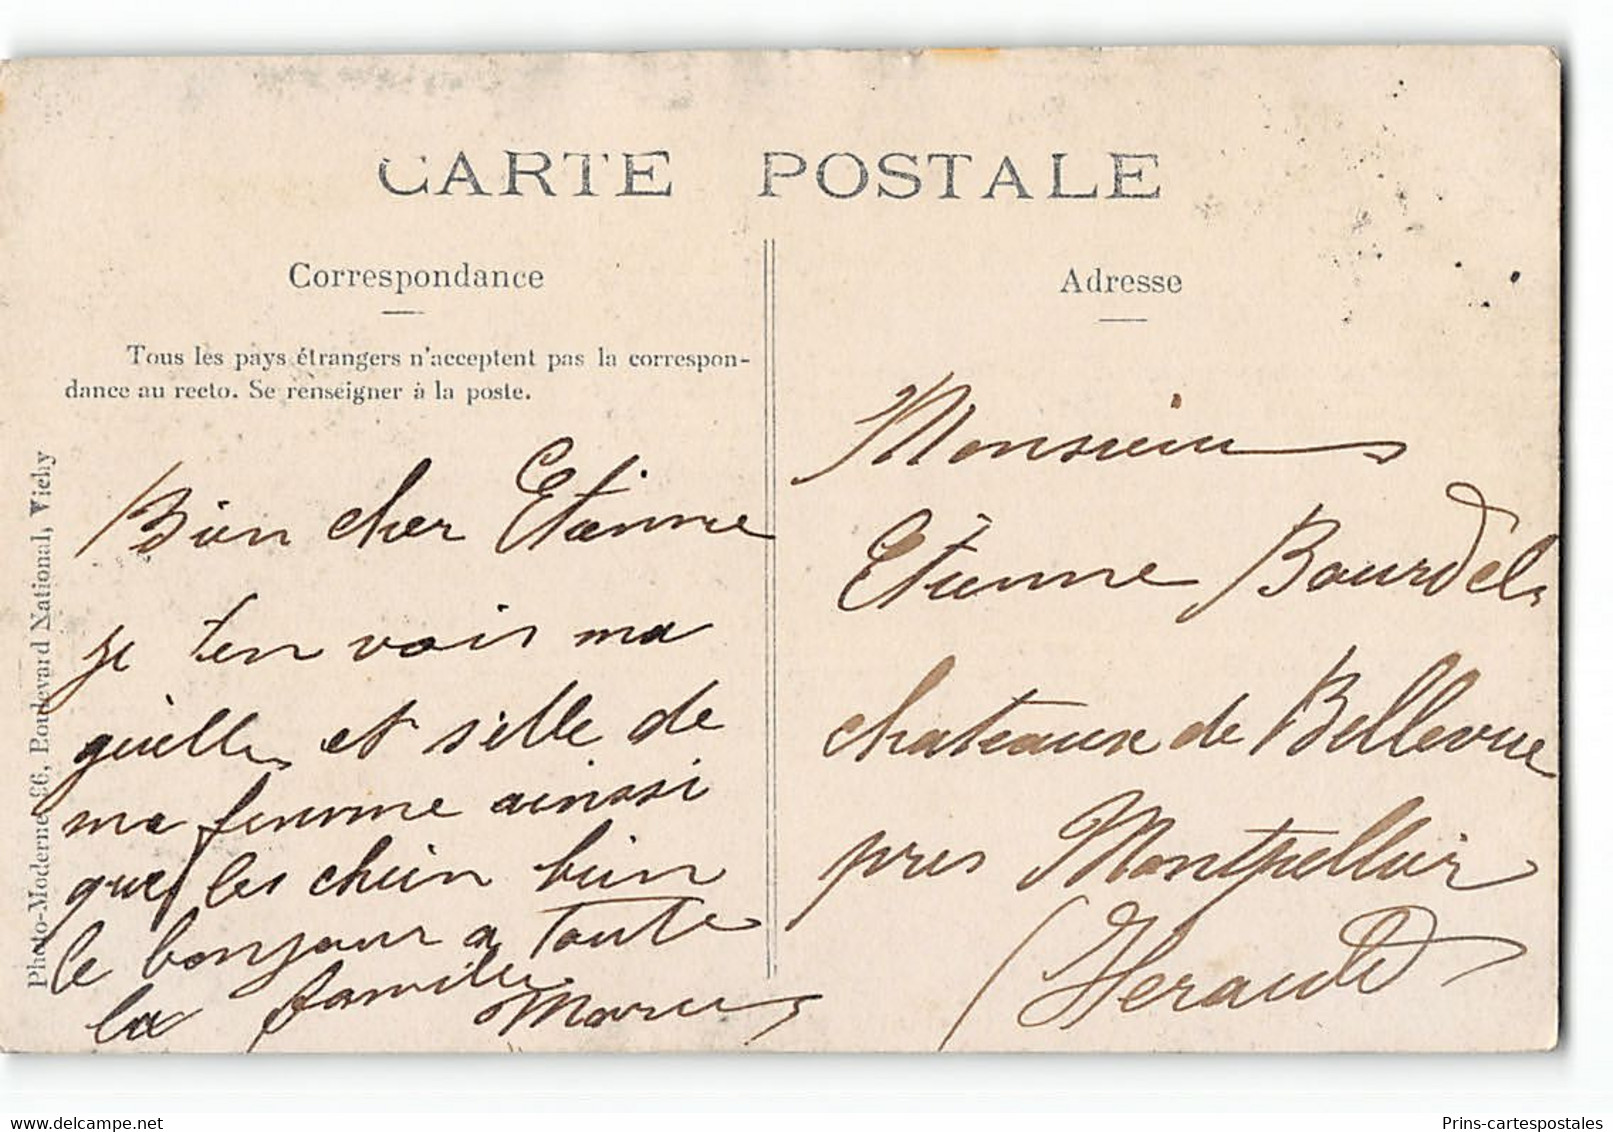 CARTE POSTALE
Correspondance
Tous les pays étrangers n'acceptent pas la correspon-
dance au recto. Se renseigner à la poste.
Bien cher Etienne
je ten vois ma
guelle et sille de
ma femme ainsi
que les chien bien
le bonjour a toute
la famille
Adresse
Monsieur
Etienne Bourdel
chateaux de Bellevue
pres Montpellier
(Herault)
Photo-Moderne, 96, Boulevard National, Vichy
Prins-cartespostales